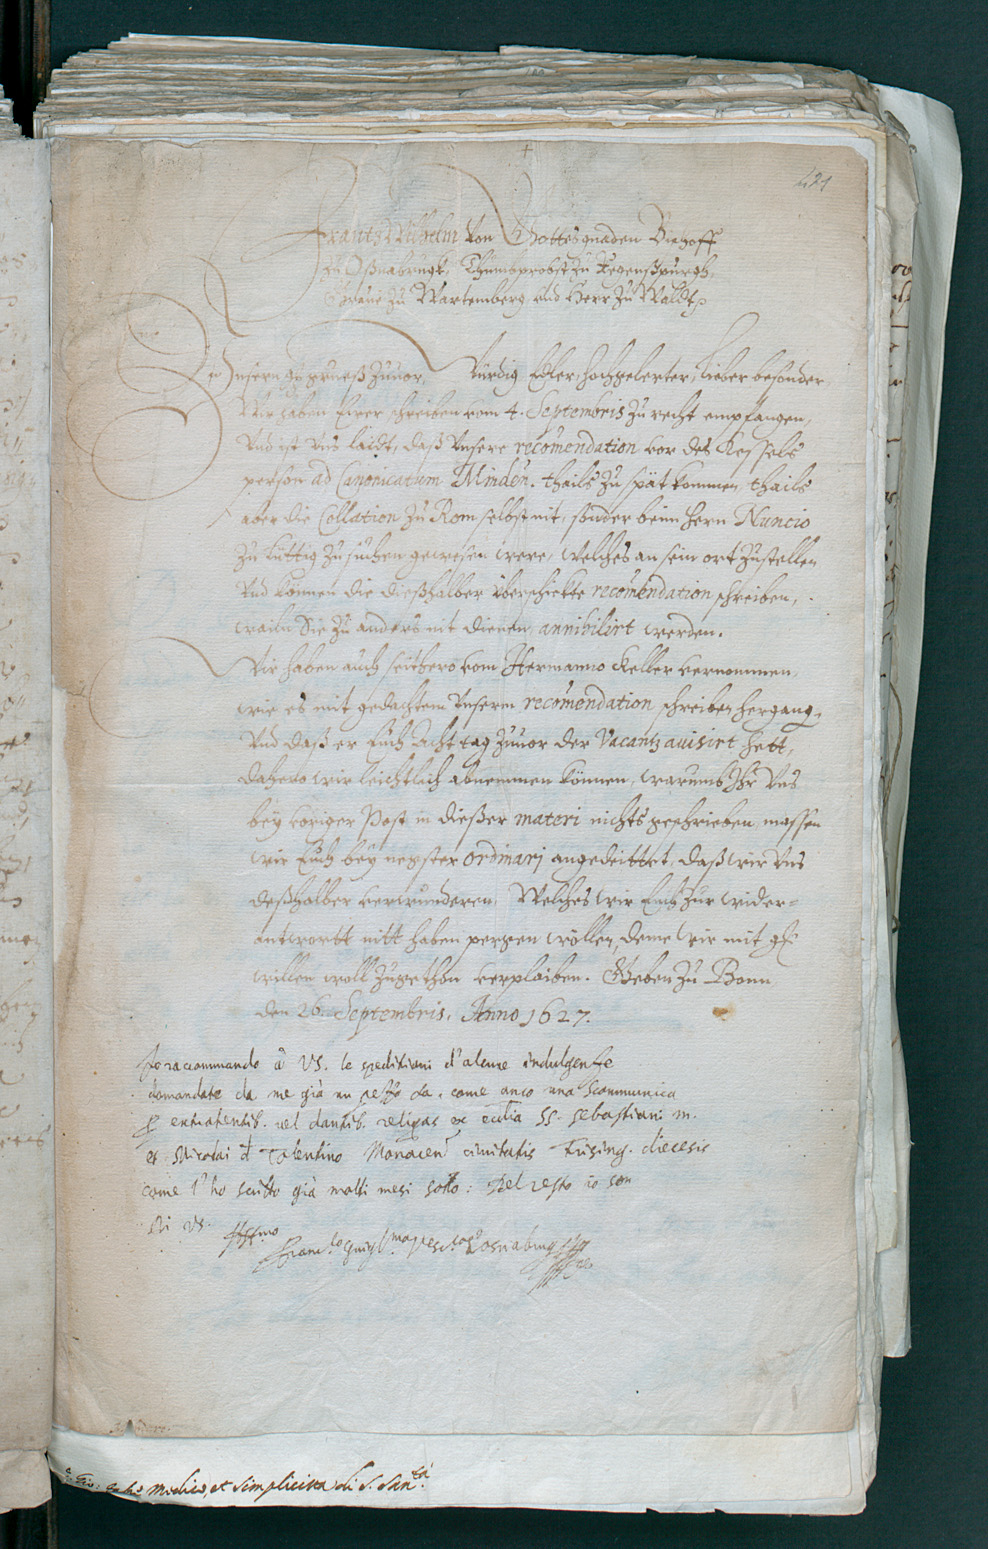 421
Frantz Wilhelm von Gottesgnaden Bischoff
zu Oßnabrugk, Thumbprobst zu Regenßpurgh,
Grave zu Wartemberg und Herr zu Waldt
Unsern gn. grueß zuuor, Würdig Edler, hochgelerter, lieber besonder,
Wir haben Ewer schreiben vom 4. Septembris zu recht empfangen,
Vnd ist vns laidt, daß Vnsere recomendation vor des Kessels
person ad Canonicatum Minden. thails zu spät kommen, thails
aber die Collation zu Rom selbst nit, sonder beim Hern Nuncio
zu Lüttig zu suchen gewesen were, welches an sein ort zustellen
Vnd können die dießhalber überschickte recomendation schreiben,
weiln Sie zu anders nit dienen, annihilirt werden.
Wir haben auch seithero vom Hermanno Keller vernommen,
wie es mit gedachtem Vnserm recomendation schreiben hergang,
Vnd daß er Euch Acht tag zuuor der Vacantz auisirt hett,
dahero wir leichtlich abnemmen können, warumb Ihr Vns
bey voriger Post in dießer materi nichts geschrieben, massen
wir Euch bey negster ordinarj angedeittet, daß wir Vns
deßhalber verwunderen. Welches wir Euch zur wider=
antwortt nitt haben pergen wöllen, deme wir mit gn.
willen woll zugethon verplaiben. Geben zu Bonn
den 26. Septembris, Anno 1627.
raccommando à VS. le speditioni d'alcune indulgenze
domandate da me già un pezzo fa, come anco una scommunica
extrahentib. vel dantib. reliquias ex ecclia SS. Sebastiani m.
et Nicolai d Tolentino Monacen civitatis Frising. diecesis
come l'ho scritto già molti mesi sono: Del resto io son
Di VS.
Affmo
Franc.co Gugl.mo Vesc.o d'Osnabrug
medico, et simplicista di S. San.tà